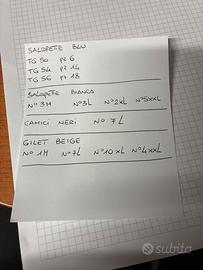 SALOPETTE BLU
TG 50 PZ 6
TG 54 PZ 14
TG 56 PZ 18
SALOPETTE BIANCA
N° 3M N° 3L N° 2XL N° 5XXL
CAMICI NERI N° 7L
GILET BEIGE
N° 1M N° 7L N° 10XL N° 4XXL
subito